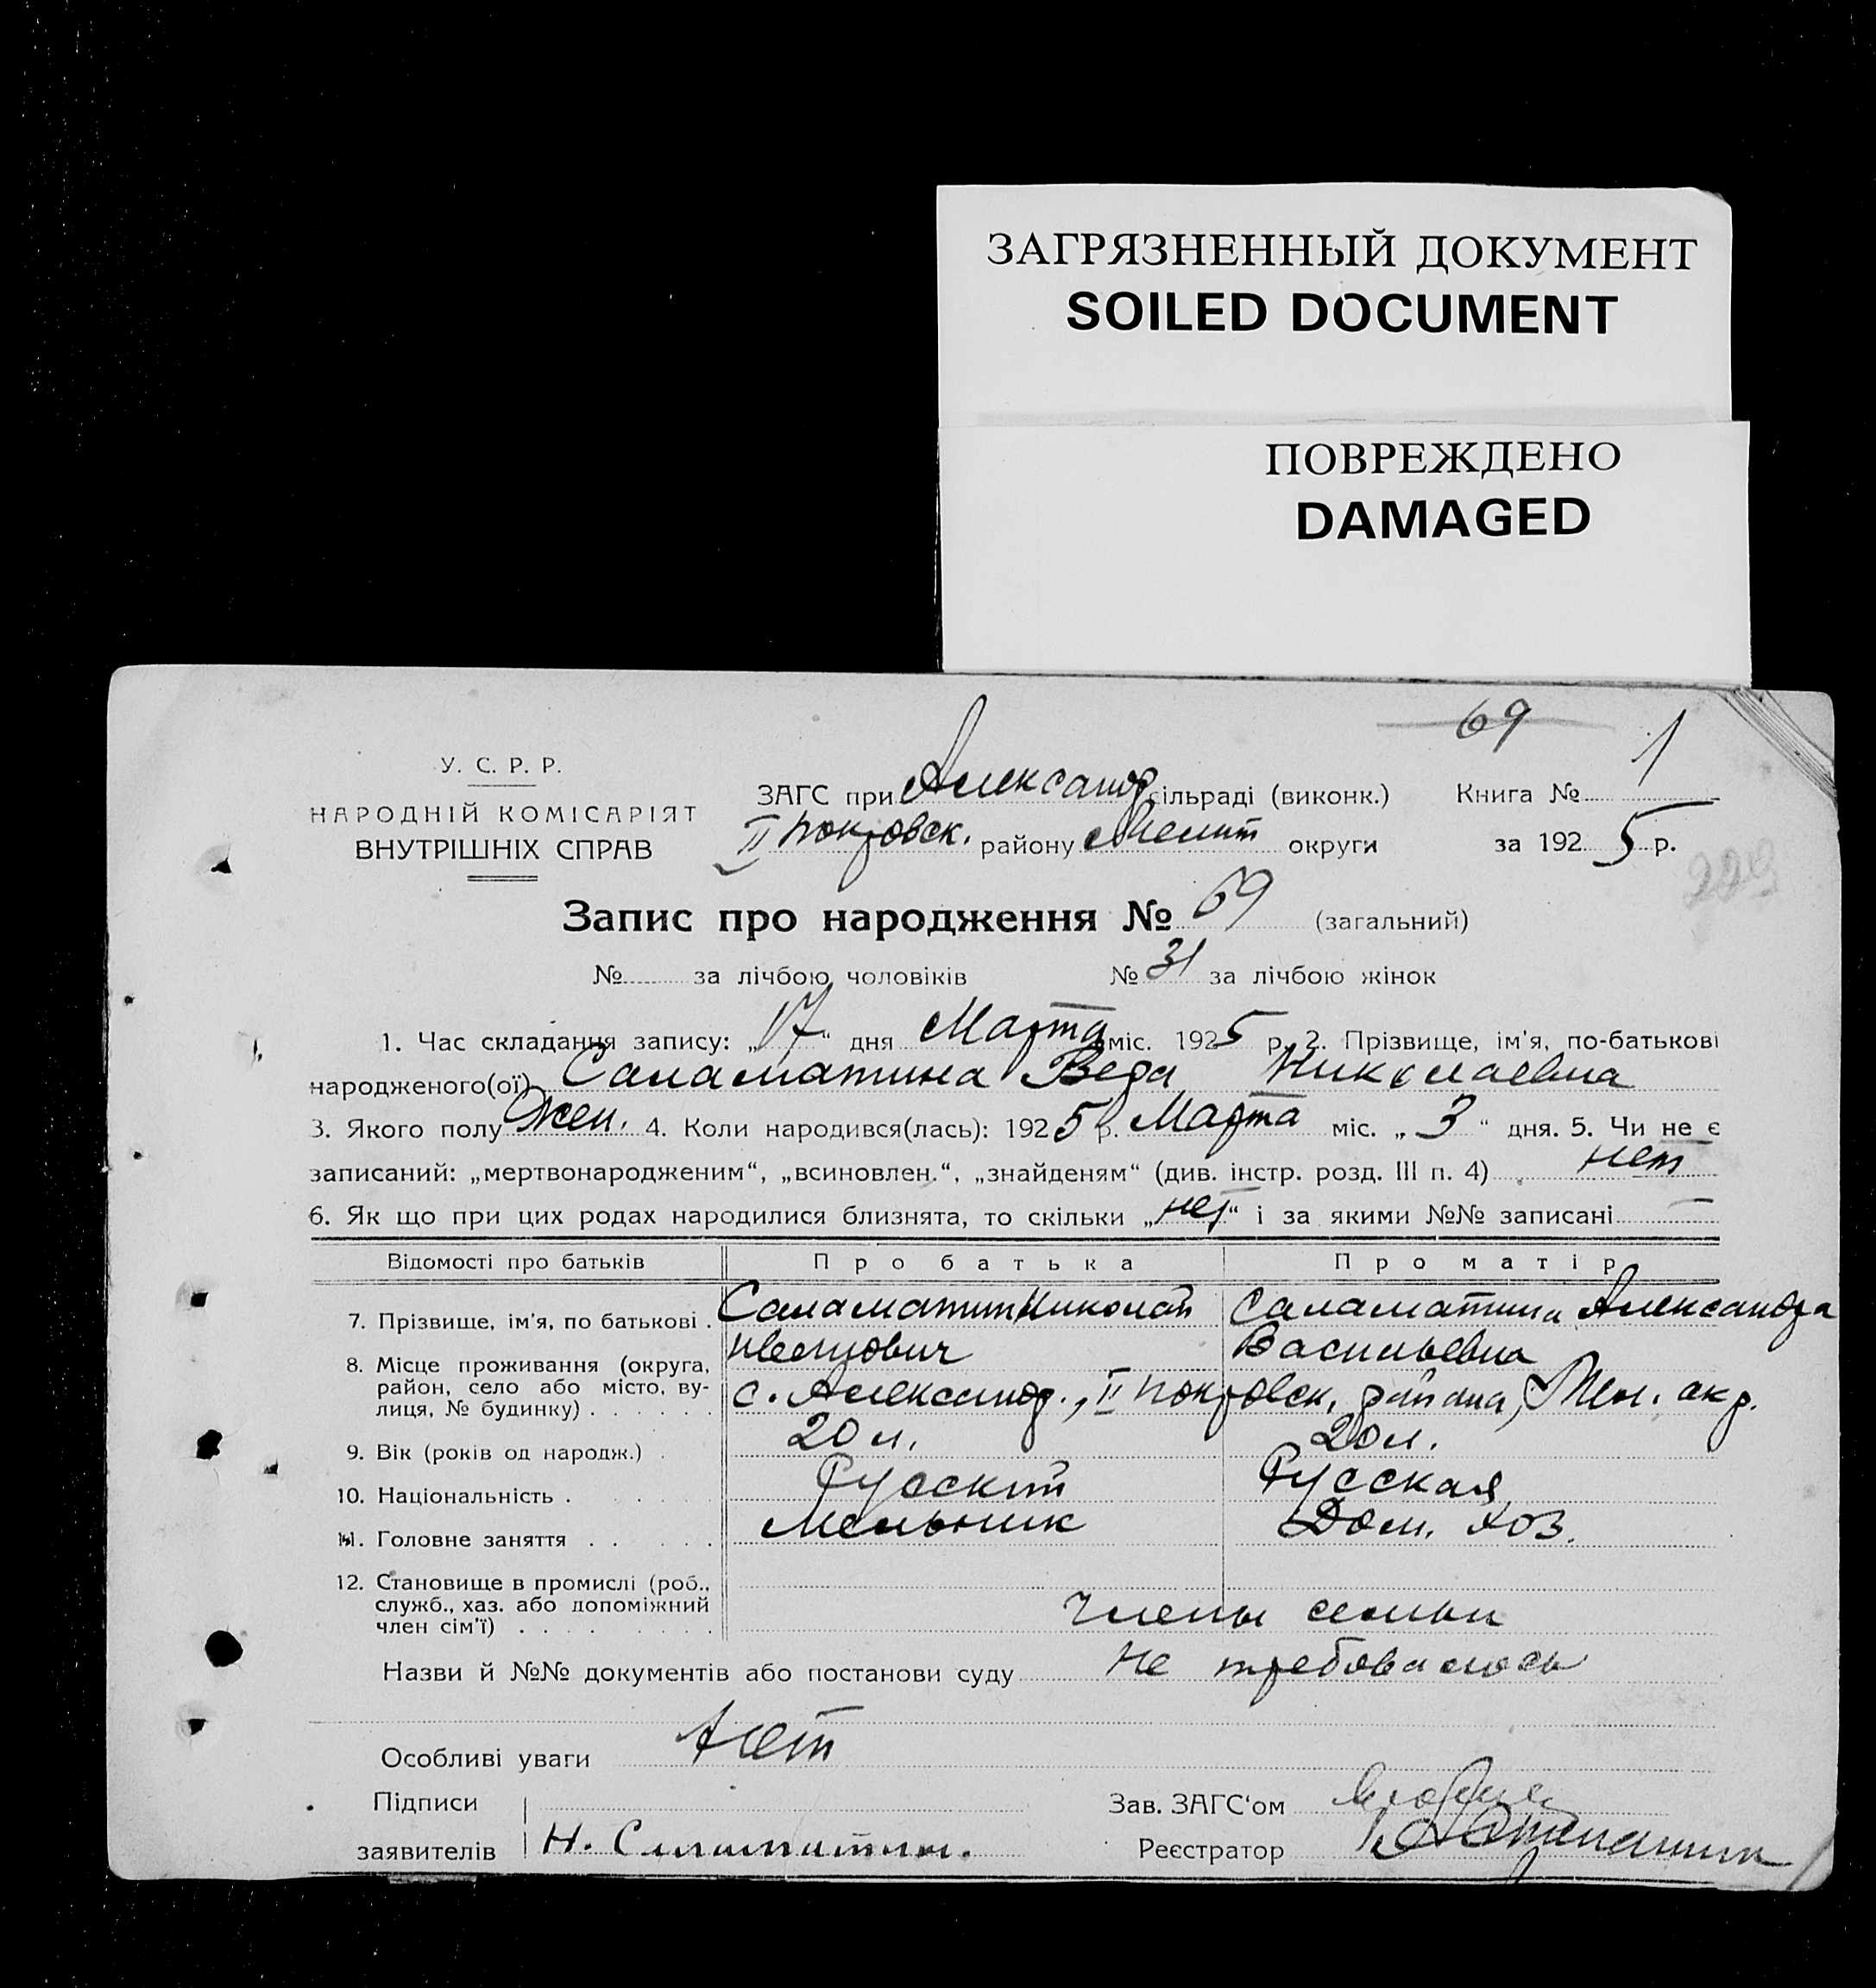 ЗАГРЯЗНЕННЫЙ ДОКУМЕНТ
SOILED DOCUMENT
ПОВРЕЖДЕНО
DAMAGED
69
У. С. Р. Р.
НАРОДНІЙ КОМІСАРІЯТ
ВНУТРІШНІХ СПРАВ
ЗАГС при Александ сільраді (виконк.) Книга № 1
II Покровск. району Мелит округи за 1925 р.
229
Запис про народження № 69 (загальний)
№ за лічбою чоловіків № 31 за лічбою жінок
1. Час складання запису: „17“ дня Марта міс. 1925 р. 2. Прізвище, ім'я, по-батькові
народженого(ої) Саламатина Вера Николаевна
3. Якого полу Жен. 4. Коли народився(лась): 1925 р. Марта міс. „3“ дня. 5. Чи не є
записаний: „мертвонародженим“, „всиновлен.“, „знайденям“ (див. інстр. розд. III п. 4) нет
6. Як що при цих родах народилися близнята, то скільки „нет“ і за якими №№ записані —
Відомості про батьків Про батька Про матір
7. Прізвище, ім'я, по батькові . Саламатин Николай Саламатина Александра
Васильевна
8. Місце проживання (округа, район, село або місто, вулиця, № будинку) . с. Александ., II Покровск. района, Мел. окр.
9. Вік (років од народж.) . 20 л. 20 л.
10. Національність . Русский Русская
11. Головне заняття . . Мельник Дом. хоз.
12. Становище в промислі (роб.,
служб., хаз. або допоміжний
член сім'ї) . . . . члены семьи
Назви й №№ документів або постанови суду Не требовалось
Особливі уваги Нет
Підписи
заявителів Н. Саламатин.
Зав. ЗАГС'ом
Реєстратор